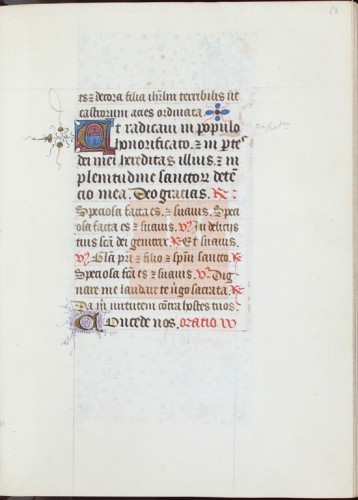 es ⁊ decora filia ihrlm terribilis ut
castrorum acies ordinata.
Et radicaui in populo
honorificato. ⁊ in ptes
dei mei hereditas illius. ⁊ in
plenitudine sanctor deten
cio mea. Deo gracias. R
Speciosa facta es. ⁊ suauis. Speci
osa facta es ⁊ suauis. V In delicijs
tuis sca dei genitrix. R Et suauis.
V Glia pri ⁊ filio ⁊ spui sancto. R
Speciosa fca es ⁊ suauis. V Dig
nare me laudare te uigo sacrata. R
Da m uirtutem contra hostes tuos.
Concede nos. oratio